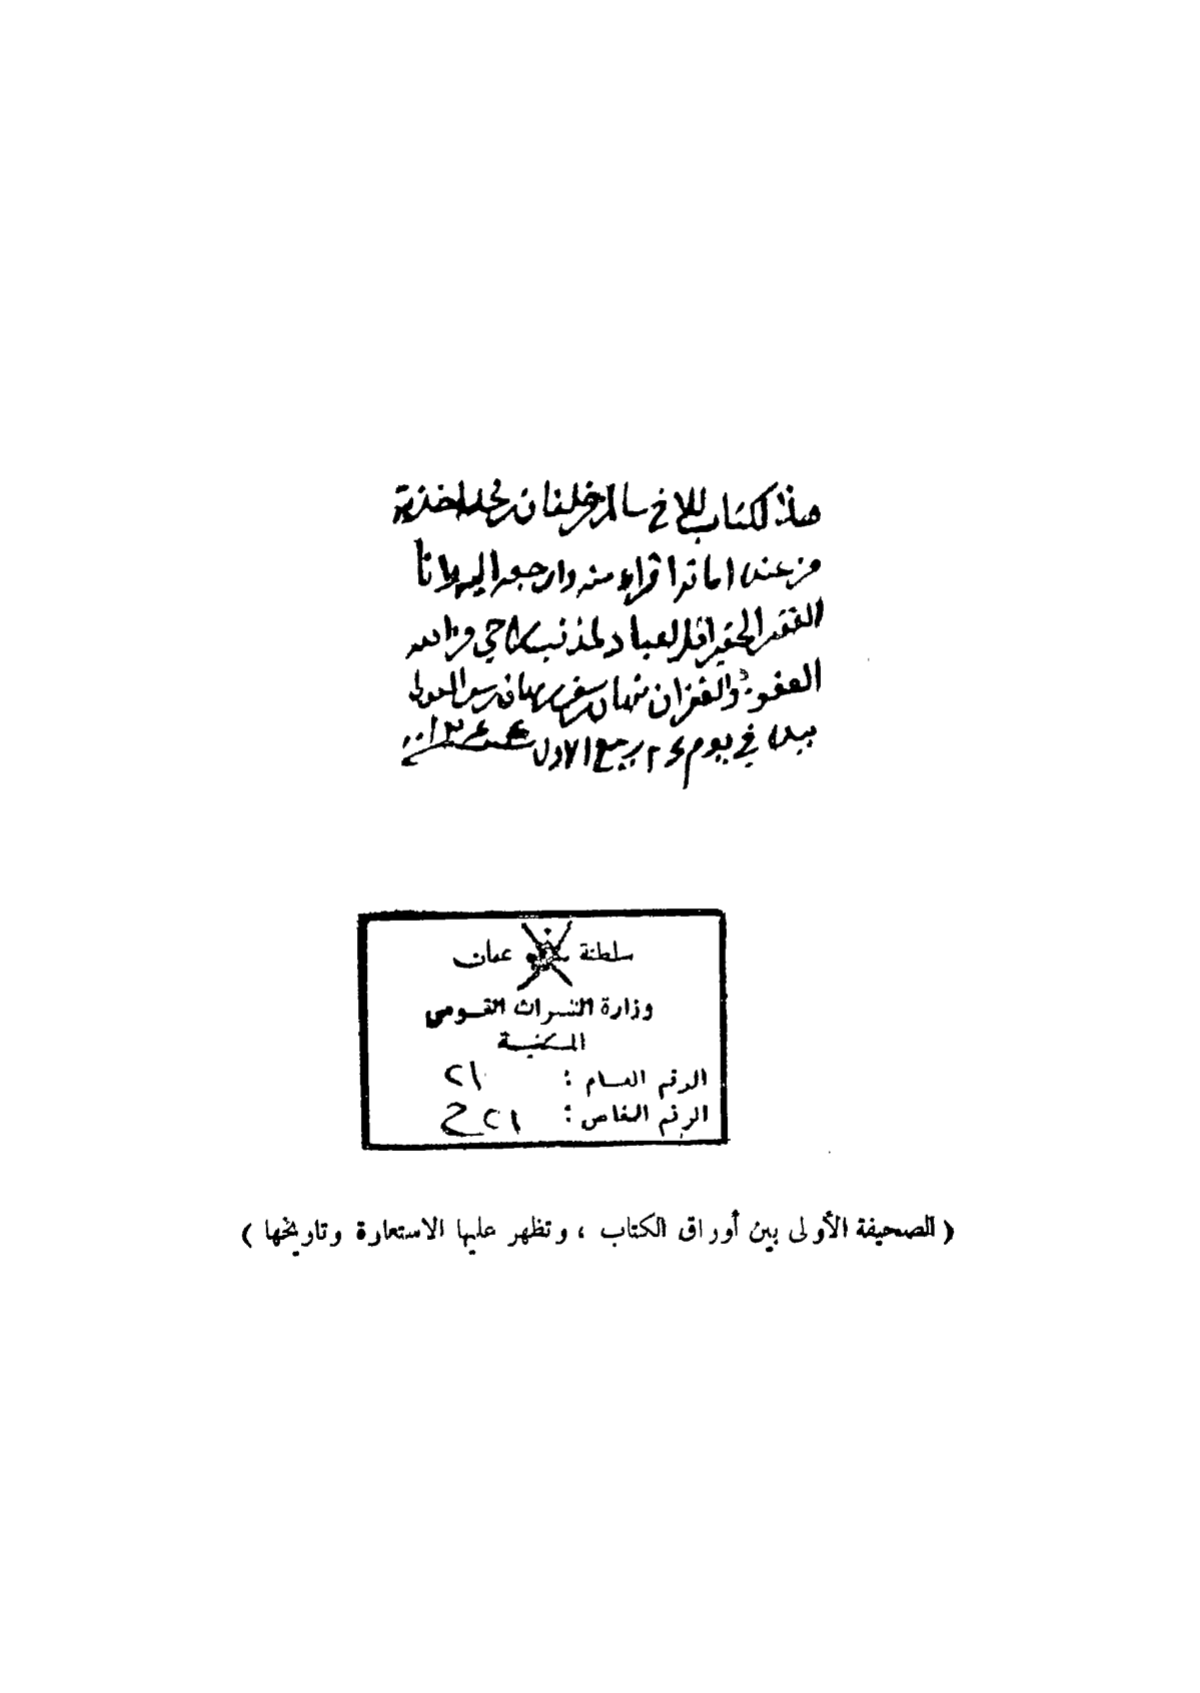 هذا الكتاب للاخ سالم بن خلفان بن محمد اخذته
من عنده امانة اقراء منه وارجعه اليه وانا
الفقير الحقير اقل العباد المذنب الراجي من الله
العفو والغفران نبهان بن سيف بن نبهان
بيده في يوم ٢٤ ربيع الاول سنة
سلطنة عمان
وزارة التراث القومي
المكتبة
الرقم العام : ٢١
الرقم الخاص : ٢١ ح
( الصحيفة الأولى بين أوراق الكتاب ، وتظهر عليها الاستعارة وتاريخها )